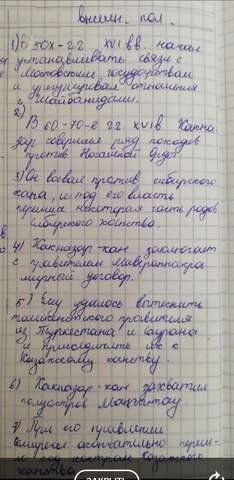 внешн. пол.
1) В 50х-гг XVI вв начал
устанавливать связи с
Московским государством
и урегулировал отношения
с Шайбанидами.
2)
В 60-70-е гг XVI в. Хакна-
зар совершил ряд походов
против Ногайской Орды
3) Он воевал против сибирского
хана, и под его власть
перешла некоторая часть родов
Сибирского ханства.
4) Хакназар-хан заключает
с правителем Мавераннахра
мирный договор.
5) Ему удалось вытеснить
ташкентского правителя
из Туркестана и Саурана
и присоединить их к
Казахскому ханству.
6) Хакназар-хан захватил
полуостров Мангыстау.
7) При его правлении
окончательно переш-
ло под контроль Казахского
ханства.
ЗАКРЫТЬ